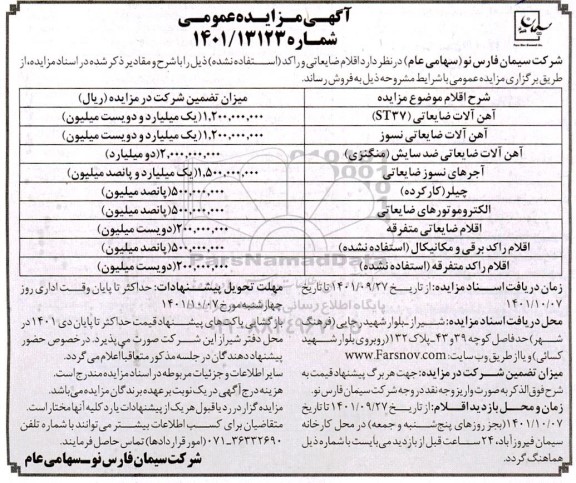 آگهی مزایده عمومی
شماره ۱۴۰۱/۱۳۱۲۳
شرکت سیمان فارس نو (سهامی عام) در نظر دارد اقلام ضایعاتی و راکد (استفاده نشده) ذیل را با شرح و مقادیر ذکر شده در اسناد مزایده، از
طریق برگزاری مزایده عمومی با شرایط مشروحه ذیل به فروش رساند.
شرح اقلام موضوع مزایده	میزان تضمین شرکت در مزایده (ریال)
آهن آلات ضایعاتی (ST۳۷)	۱,۲۰۰,۰۰۰,۰۰۰(یک میلیارد و دویست میلیون)
آهن آلات ضایعاتی نسوز	۱,۲۰۰,۰۰۰,۰۰۰(یک میلیارد و دویست میلیون)
آهن آلات ضایعاتی ضد سایش (منگنزی)	۲,۰۰۰,۰۰۰,۰۰۰(دو میلیارد)
آجرهای نسوز ضایعاتی	۱,۵۰۰,۰۰۰,۰۰۰(یک میلیارد و پانصد میلیون)
چیلر(کارکرده)	۵۰۰,۰۰۰,۰۰۰(پانصد میلیون)
الکتروموتورهای ضایعاتی	۵۰۰,۰۰۰,۰۰۰(پانصد میلیون)
اقلام ضایعاتی متفرقه	۲۰۰,۰۰۰,۰۰۰(دویست میلیون)
اقلام راکد برقی و مکانیکال (استفاده نشده)	۵۰۰,۰۰۰,۰۰۰(پانصد میلیون)
اقلام راکد متفرقه (استفاده نشده)	۲۰۰,۰۰۰,۰۰۰(دویست میلیون)
زمان دریافت اسناد مزایده: از تاریخ ۱۴۰۱/۰۹/۲۷ تا تاریخ
۱۴۰۱/۱۰/۰۷
محل دریافت اسناد مزایده: شیراز ـ بلوار شهید رجایی (فرهنگ
شهر) حد فاصل کوچه ۳۹ و ۴۳ـ پلاک ۱۳۲ (روبروی بلوار شهید
کسائی) و یا از طریق وب سایت: www.Farsnov.com
میزان تضمین شرکت در مزایده: جهت هر برگ پیشنهاد قیمت به
شرح فوق الذکر به صورت واریز وجه نقد در وجه شرکت سیمان فارس نو.
زمان و محل بازدید اقلام: از تاریخ ۱۴۰۱/۰۹/۲۷ تا تاریخ
۱۴۰۱/۱۰/۰۷ (بجز روزهای پنج‌شنبه و جمعه) در محل کارخانه
سیمان فیروزآباد، ۲۴ ساعت قبل از بازدید می‌بایست با شماره ذیل
هماهنگ گردد.
مهلت تحویل پیشنهادات: حداکثر تا پایان وقت اداری روز
چهارشنبه مورخ ۱۴۰۱/۱۰/۰۷
بازگشایی پاکت‌های پیشنهاد قیمت حداکثر تا پایان دی ۱۴۰۱ در
محل دفتر شیراز این شرکت صورت می‌پذیرد. در خصوص حضور
پیشنهاددهندگان در جلسه مذکور متعاقبا اعلام می گردد.
سایر اطلاعات و جزئیات مربوطه در اسناد مزایده مندرج است.
هزینه درج آگهی در یک نوبت بر عهده برندگان مزایده می‌باشد.
مزایده گزار در رد یا قبول هر یک از پیشنهادات یا رد کلیه آنها مختار است.
متقاضیان برای کسب اطلاعات بیشتر می‌توانند با شماره تلفن
۰۷۱-۳۶۳۳۲۶۹۰ (امور قراردادها) تماس حاصل فرمایند.
شرکت سیمان فارس نو ـ سهامی عام